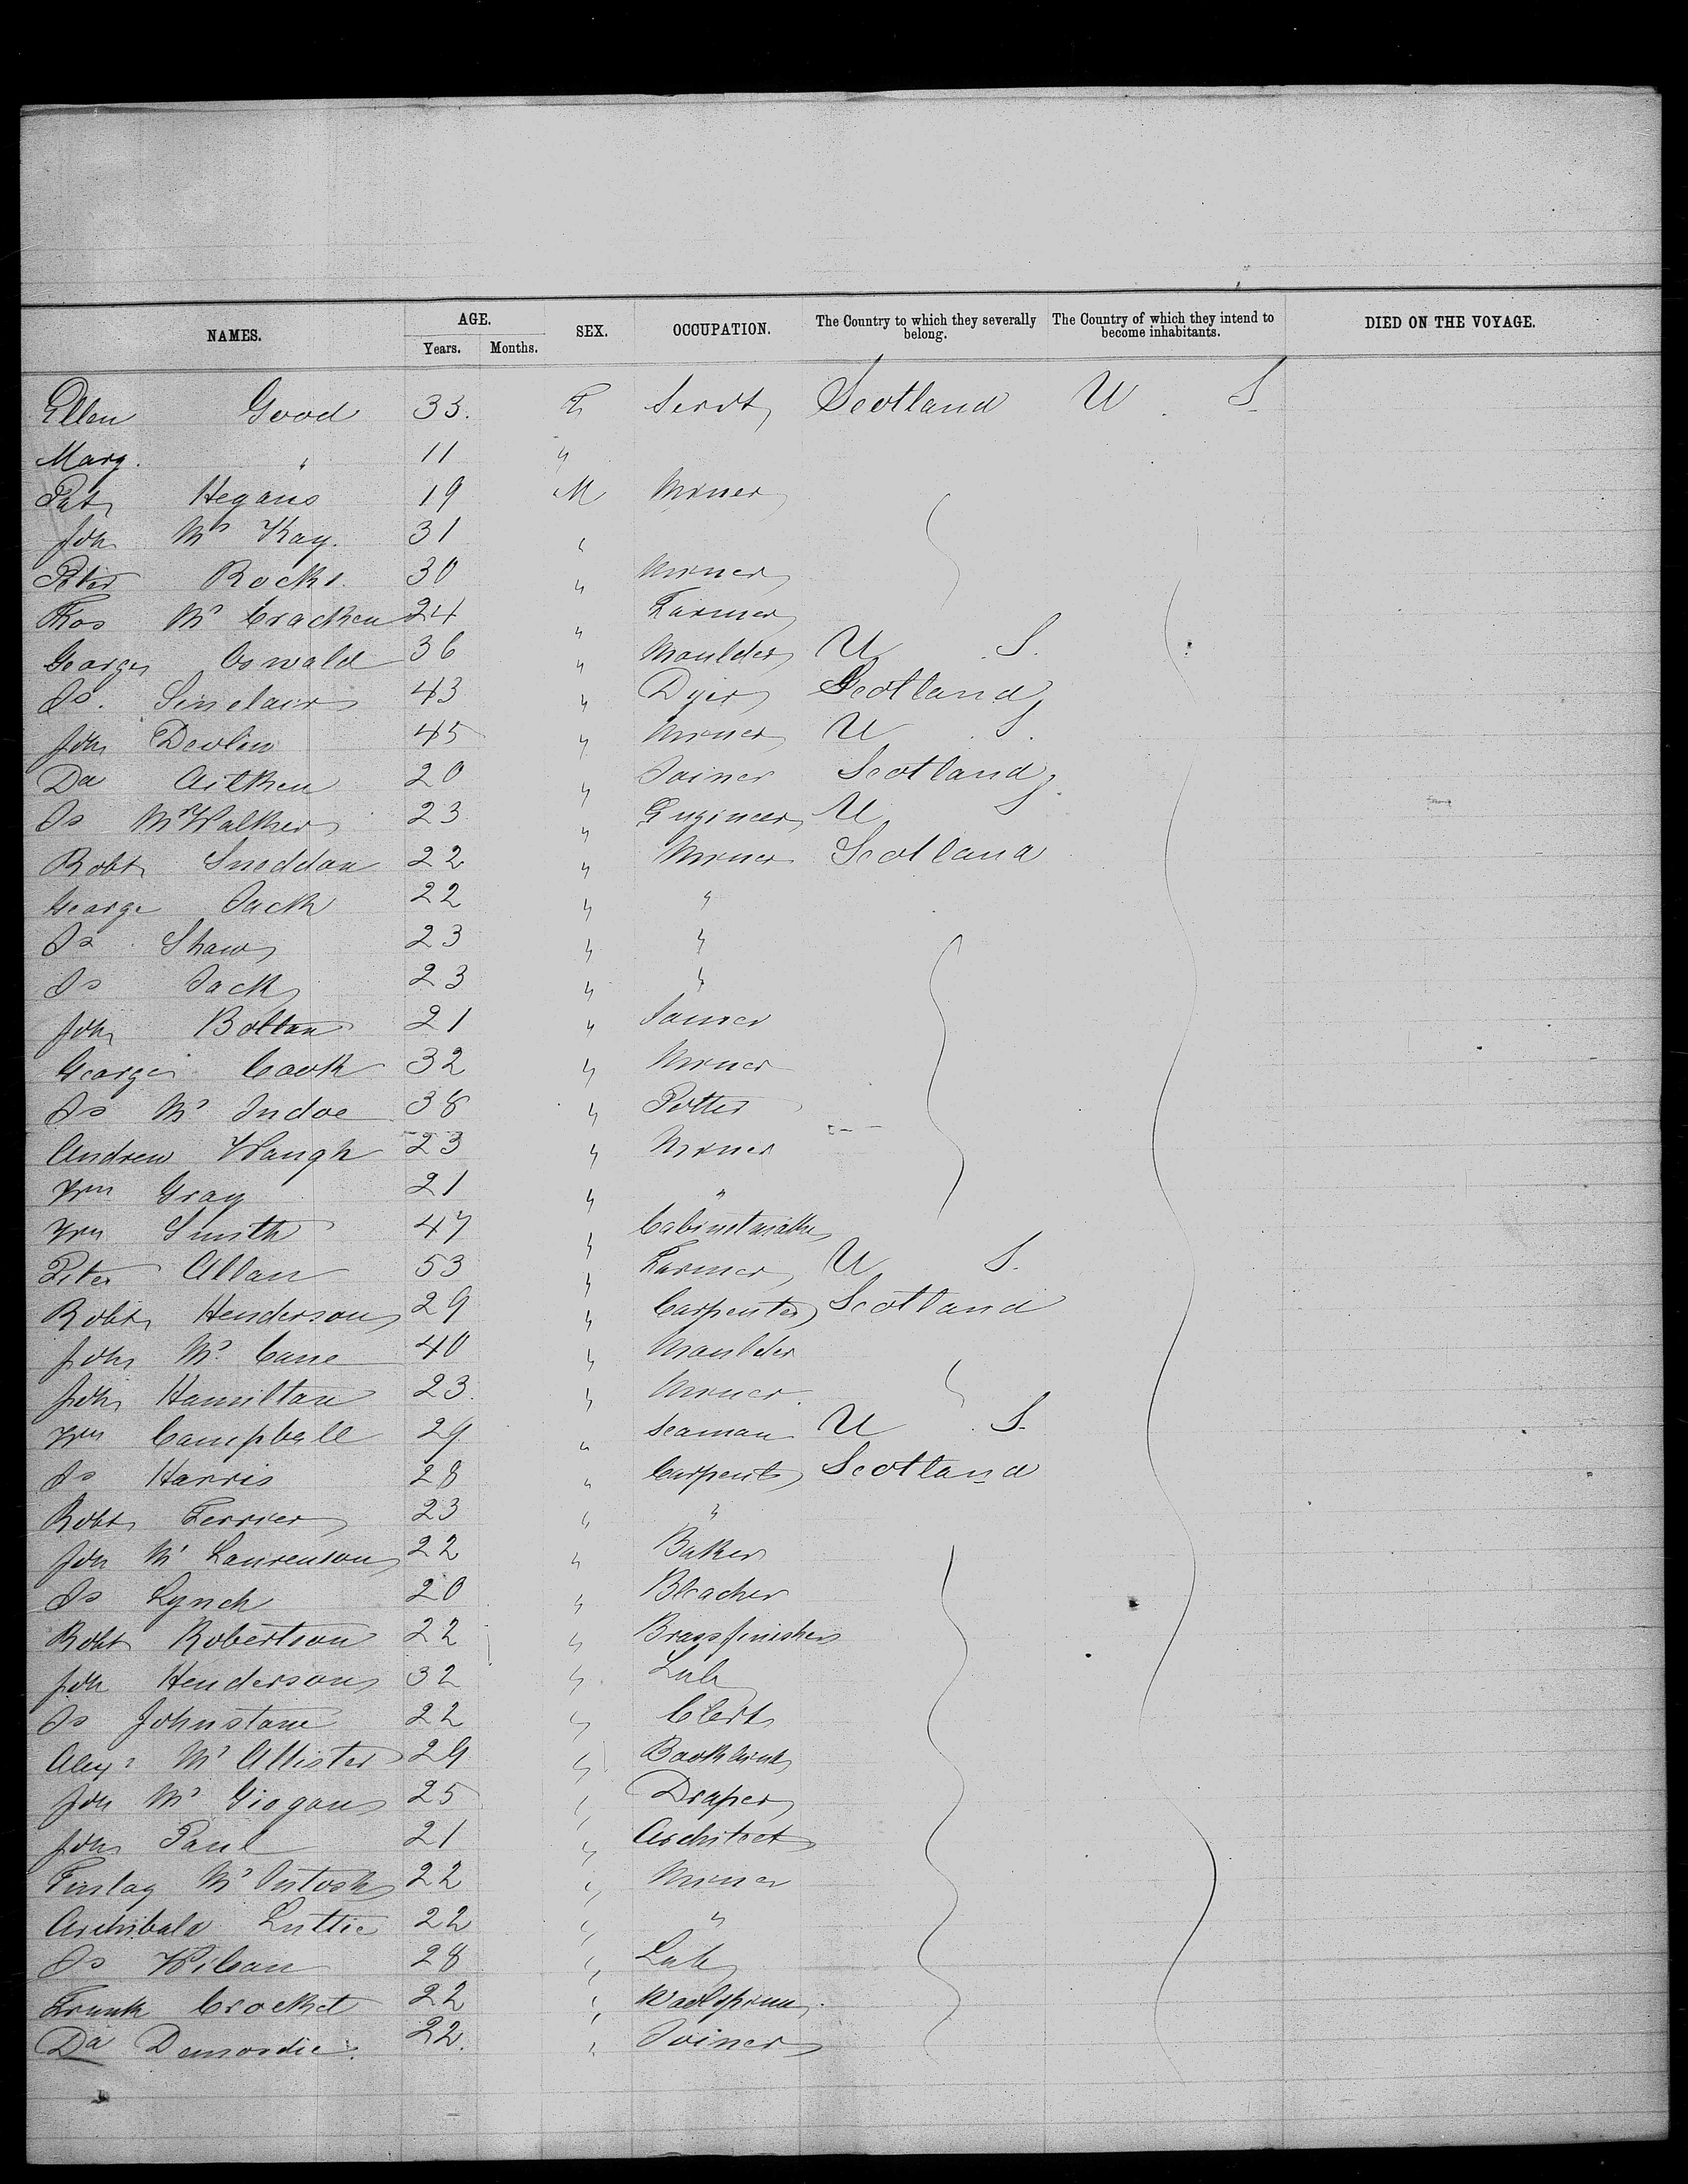 NAMES. AGE. Years. Months. SEX. OCCUPATION. The Country to which they severally belong. The Country of which they intend to become inhabitants. DIED ON THE VOYAGE.
Ellen Good 33. F Servt Scotland U. S.
Marg. " 11 "
Pat Hegans 19 M Miner
Joh Mc Kay. 31 "
Peter Rocks 30 " Miner
Thos Mc Cracken 24 " Farmer
George Oswald 36 " Moulder U. S.
Js. Sinclair 43 " Dyer Scotland
Joh Devlin 45 " Miner U. S.
Da Aitken 20 " Joiner Scotland
Js McWalker 23 " Engineer U S.
Robt Sneddon 22 " Miner Scotland
George Jack 22 " "
Js Shaw 23 " "
Js Jack 23 " "
Joh Bolton 21 " Joiner
George Cook 32 " Miner
Js Mc Indoe 38 " Potter
Andrew Waugh 23 " Miner
Wm Gray 21 " "
Wm Smith 47 " Cabinetmaker
Peter Allan 53 " Farmer U S.
Robt Henderson 29 " Carpenter Scotland
John Mc Cane 40 " Moulder
John Hamilton 23. " Miner
Wm Campbell 29 " Seaman U. S.
Js Harris 28 " Carpent Scotland
Robt Ferrier 23 " "
Joh Mc Laurenson 22 " Baker
Js Lynch 20 " Bleacher
Robt Robertson 22 " Brassfinisher
Joh Henderson 32 " Lab
Js Johnstone 22 " Clerk
Alexr Mc Allister 29 " Bookbind
Joh Mc Giogan 25 " Draper
Joh Paul 21 " Architect
Finlay Mc Intosh 22 " Miner
Archibald Luttie 22 " "
Js Wilson 28 " Lab
Frank Crocket 22 " Woolspinn
Da Demordie 22. " Joiner